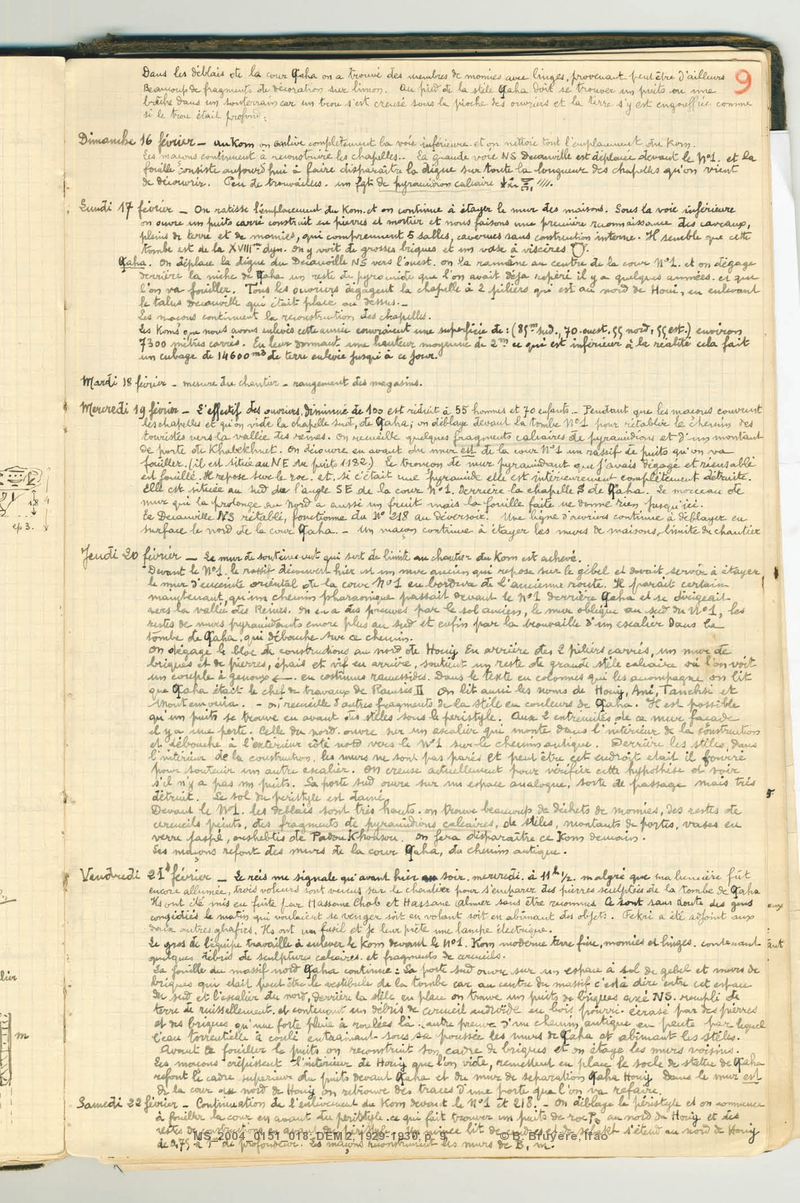 Dans les déblais de la cour Qaha on a trouvé des membres de momies avec linges, provenant peut être d'ailleurs
9
Beaucoup de fragments de décoration sur limon. Au pied de la stèle Qaha doit se trouver un puits ou une
brèche dans un souterrain car un trou s'est creusé sous la pioche des ouvriers et la terre s'y est engouffrée comme
si le trou était profond.
Dimanche 16 février – au Kom on enlève complètement la voie inférieure et on nettoie tout l'emplacement du Kom.
Les maçons continuent à reconstruire les chapelles. – La grande voie NS Decauville est déplacée devant le N°1. et la
fouille consiste aujourd'hui à faire disparaître la digue sur toute la longueur des chapelles qu'on vient
de découvrir. Peu de trouvailles. un fgt de pyramidion calcaire
Lundi 17 février – On ratisse l'emplacement du Kom et on continue à étayer le mur des maisons. Sous la voie inférieure
on ouvre un puits carré construit en pierres et mortier et nous faisons une première reconnaissance des caveaux,
pleins de terre et de momies, qui comprennent 5 salles, caveaux sans construction interne. Il semble que cette
tombe est de la XVIIIme dyn. on y voit de grosses briques et un vase à viscères
Qaha. On déplace la digue du Decauville NS vers l'ouest. on la ramène au centre de la cour N°1. et on dégage
derrière la niche de Qaha un reste de pyramide que l'on avait déjà repéré il y a quelques années. et que
l'on va fouiller. Tous les ouvriers dégagent la chapelle à 2 piliers qui est au nord de Houi, en enlevant
le talus decauville qui était placé au dessus. –
Les maçons continuent la reconstruction des chapelles.
Les Koms que nous avons enlevés cette année couvraient une superficie de : (85m sud, 70 ouest, 55 nord, 55 est.) environ
7300 mètres carrés. En leur donnant une hauteur moyenne de 2m ce qui est inférieur à la réalité cela fait
un cubage de 14600 m3 de terre enlevée jusqu'à ce jour.
Mardi 18 février – mesure du chantier – rangement des magasins.
Mercredi 19 février – L'effectif des ouvriers diminué de 100 est réduit à 55 hommes et 70 enfants. – Pendant que les maçons couvrent
les chapelles et qu'on vide la chapelle sud, de Qaha; on déblaye devant la tombe N°1 pour rétablir le chemin des
touristes vers la vallée des reines. On recueille quelques fragments calcaires de pyramidions et d'un montant
de porte du Khabekhnet. On découvre en avant du mur est de la cour N°1 un massif de puits qu'on va
fouiller. (il est situé au NE du puits 1182.) Le tronçon de mur pyramidant que j'avais dégagé et reensablé
est fouillé. Il repose sur le roc. et, si c'était une pyramide elle est intérieurement complètement détruite.
Elle est située au sud de l'angle SE de la cour N°1. Derrière la chapelle S de Qaha. Le morceau de
mur qui la prolonge au nord a aussi un fruit mais la fouille faite ne donne rien jusqu'ici.
Le Decauville NS rétabli, fonctionne du N° 218 au Déversoir. Une ligne d'ouvriers continue à déblayer en
surface le nord de la cour Qaha. – Un maçon continue à étayer les murs de maisons, limite du chantier
Jeudi 20 février – Le mur de soutènement qui sert de limite au chantier du Kom est achevé.
Devant le N°1. le massif découvert hier est un mur ancien qui repose sur le gébel et devait servir à étayer
le mur d'enceinte oriental de la cour N°1 en bordure de l'ancienne route. Il paraît certain
maintenant, qu'un chemin pharaonique passait devant le N°1 derrière Qaha et se dirigeait
vers la vallée des Reines. On en a des preuves par le sol ancien, le mur oblique au sud du N°1, les
restes de murs pyramidants encore plus au sud et enfin par la trouvaille d'un escalier dans la
tombe de Qaha, qui débouche sur ce chemin.
On dégage le bloc de constructions au nord de Houiy. En arrière des 2 piliers carrés, un mur de
briques et de pierres, épais et vif en arrière, soutient un reste de grande stèle calcaire où l'on voit
un couple à genoux ← en costumes ramessides. Dans le texte en colonnes qui les accompagne on lit
que Qaha était le chef de travaux de Ramsès II On lit aussi les noms de Houiy, Ani, Tanehsi et
Montemouia. – on recueille d'autres fragments de la stèle en couleurs de Qaha. Il est possible
qu'un puits se trouve en avant des stèles sous le peristyle. Aux 2 extremités de ce mur façade
il y a une porte. Celle du nord ouvre sur un escalier qui monte dans l'intérieur de la construction
et débouche à l'extérieur côté nord vers le N°1 sur le chemin antique. Derrière les stèles, dans
l'intérieur de la construction, les murs ne sont pas parés et peut être cet endroit était il fourré
pour soutenir un autre escalier. On creuse actuellement pour vérifier cette hypothèse et voir
s'il n'y a pas un puits. La porte sud ouvre sur un espace analogue, sorte de passage mais très
détruit. Le sol du peristyle est damé.
Devant le N°1. les déblais sont très hauts. on trouve beaucoup de déchets de momies, des restes de
cercueils peints, des fragments de pyramidions calcaires, de stèles, montants de portes, vases en
verre jaspé, oushebtis de Padou Khonsou. On fera disparaître ce Kom demain.
Les maçons refont des murs de la cour Qaha, du chemin antique.
Vendredi 21 février – Le reis me signale qu'avant hier soir, mercredi, à 11h 1/2. malgré que ma lumière fût
encore allumée, trois voleurs sont venus sur le chantier pour s'emparer des pierres sculptées de la tombe de Qaha
Ils ont été mis en fuite par Hassane Chab et Hassane Ahmer sans être reconnus. Ce sont sans doute des gens
congédiés le matin qui voulaient se venger soit en volant soit en abîmant des objets. Fekri a été adjoint aux
deux autres ghafirs. Ils ont un fusil et je leur prête une lampe électrique.
Le gros de l'équipe travaille à enlever le Kom devant le N°1. Kom moderne terre fine, momies et linges. contenant
quelques débris de sculptures calcaires. et fragments de cercueils.
La fouille du massif nord Qaha continue : La porte sud ouvre sur un espace à sol de gebel et murs de
briques qui était peut être le vestibule de la tombe car au centre du massif c'est à dire entre cet espace
du sud et l'escalier du nord, derrière la stèle en place on trouve un puits de briques axé NS. rempli de
terre de ruissellement. et contenant un débris de cercueil en bois pourri. écrasé par des pierres
et des briques qu'une forte pluie a roulées là. autre preuve d'un chemin antique en pente par lequel
l'eau torrentielle a coulé entraînant sous sa poussée les murs de Qaha et abimant les stèles.
Avant de fouiller le puits on reconstruit son cadre de briques et on étaye les murs voisins.
Les maçons crépissent l'intérieur de Houiy que l'on vide, remettent en place le socle de statue de Qaha
refont le cadre supérieur du puits devant Qaha et du mur de séparation Qaha Houiy. Dans le mur est
de la cour au nord de Houiy on retrouve des traces d'une porte que l'on va refaire.
Samedi 22 février – Continuation de l'enlèvement du Kom devant le N°1 et 218. – On déblaye le peristyle et on commence
à fouiller la cour en avant du peristyle. ce qui fait trouver un puits de roc au nord de Houiy et des
restes de constructions en avant du peristyle. Un mince lit de cendres et de s'étend au nord de Houiy
de 0,75 à 1m de profondeur. Les maçons reconstruisent les murs de B, m.
MS_2004_0151_018, DEM 2, 1929-1930, p. 9 © B. Bruyère, Ifao